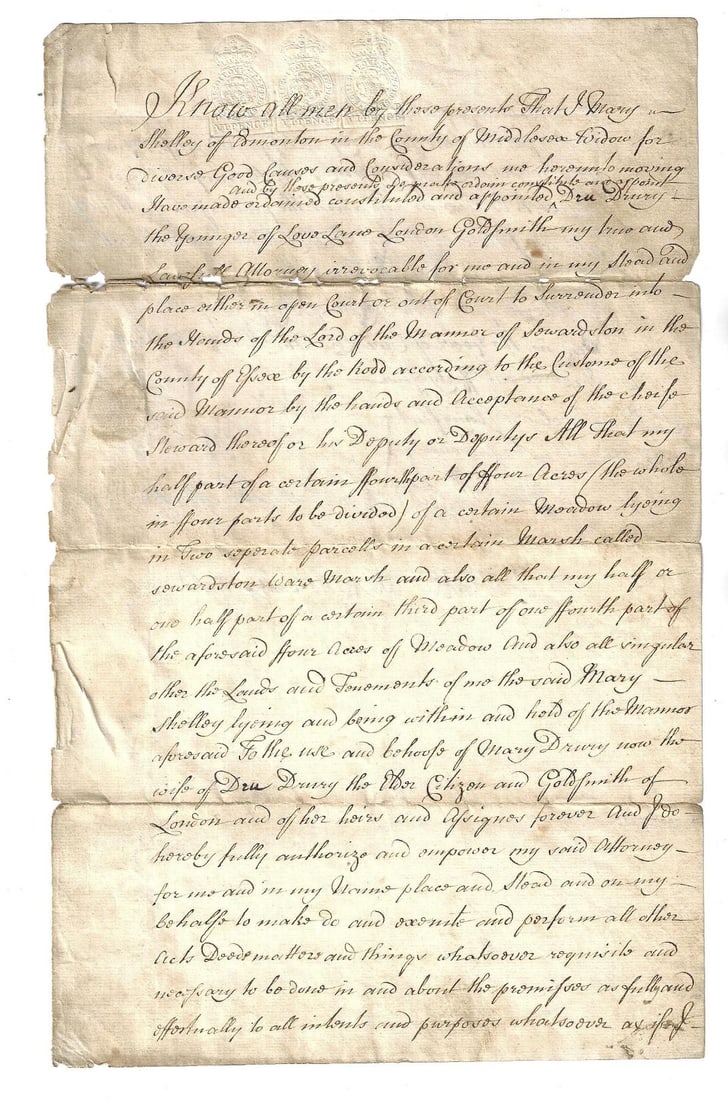 Know all men by these presents That I Mary
Shelley of Edmonton in the County of Middlesex Widow for
diverse Good Causes and Considerations me hereunto moving
and by these presents Do make ordain constitute and appoint
Have made ordained constituted and appointed Dru Drury
the Younger of Love Lane London Goldsmith my true and
Lawfull Attorney irrevocable for me and in my Stead and
place either in open Court or out of Court to Surrender into
the Hands of the Lord of the Mannor of Sewardston in the
County of Essex by the Rodd according to the Custome of the
said Mannor by the hands and Acceptance of the cheife
Steward thereof or his Deputy or Deputys All That my
half part of a certain ffourthpart of ffour Acres (the whole
in ffour parts to be divided) of a certain Meadow lyeing
in Two seperate parcells in a certain Marsh called
Sewardston Ware Marsh and also all that my half or
one half part of a certain third part of one ffourth part of
the aforesaid ffour Acres of Meadow And also all singular
other the Lands and Tenements of me the said Mary
Shelley lyeing and being within and held of the Mannor
aforesaid To the use and behoofe of Mary Drury now the
wife of Dru Drury the Elder Citizen and Goldsmith of
London and of her heirs and Assignes forever And I do
hereby fully authorize and empower my said Attorney
for me and in my Name place and Stead and on my
behalfe to make do and execute and perform all other
Acts Deeds matters and things whatsoever requisite and
necessary to be done in and about the premisses as fully and
effectually to all intents and purposes whatsoever as if I